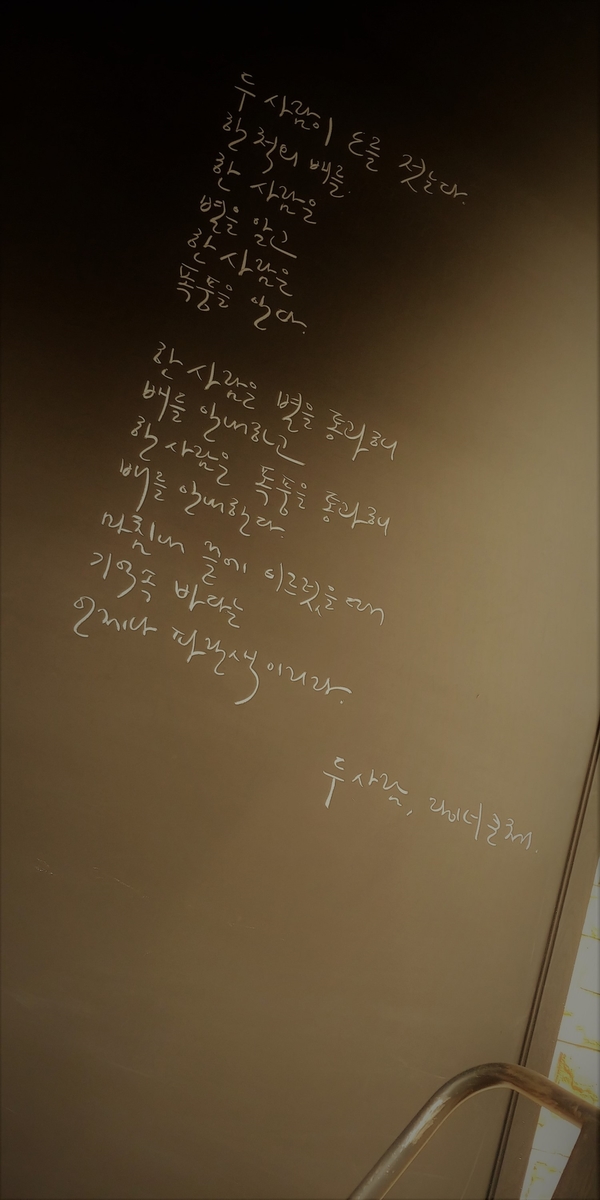 두 사람이 노를 젓는다.
한 척의 배를.
한 사람은
별을 알고
한 사람은
폭풍을 안다.
한 사람은 별을 통과해
배를 안내하고
한 사람은 폭풍을 통과해
배를 안내한다.
마침내 끝에 이르렀을 때
기억속 바다는
언제나 파란색이리라.
두 사람, 라이너 쿤체.